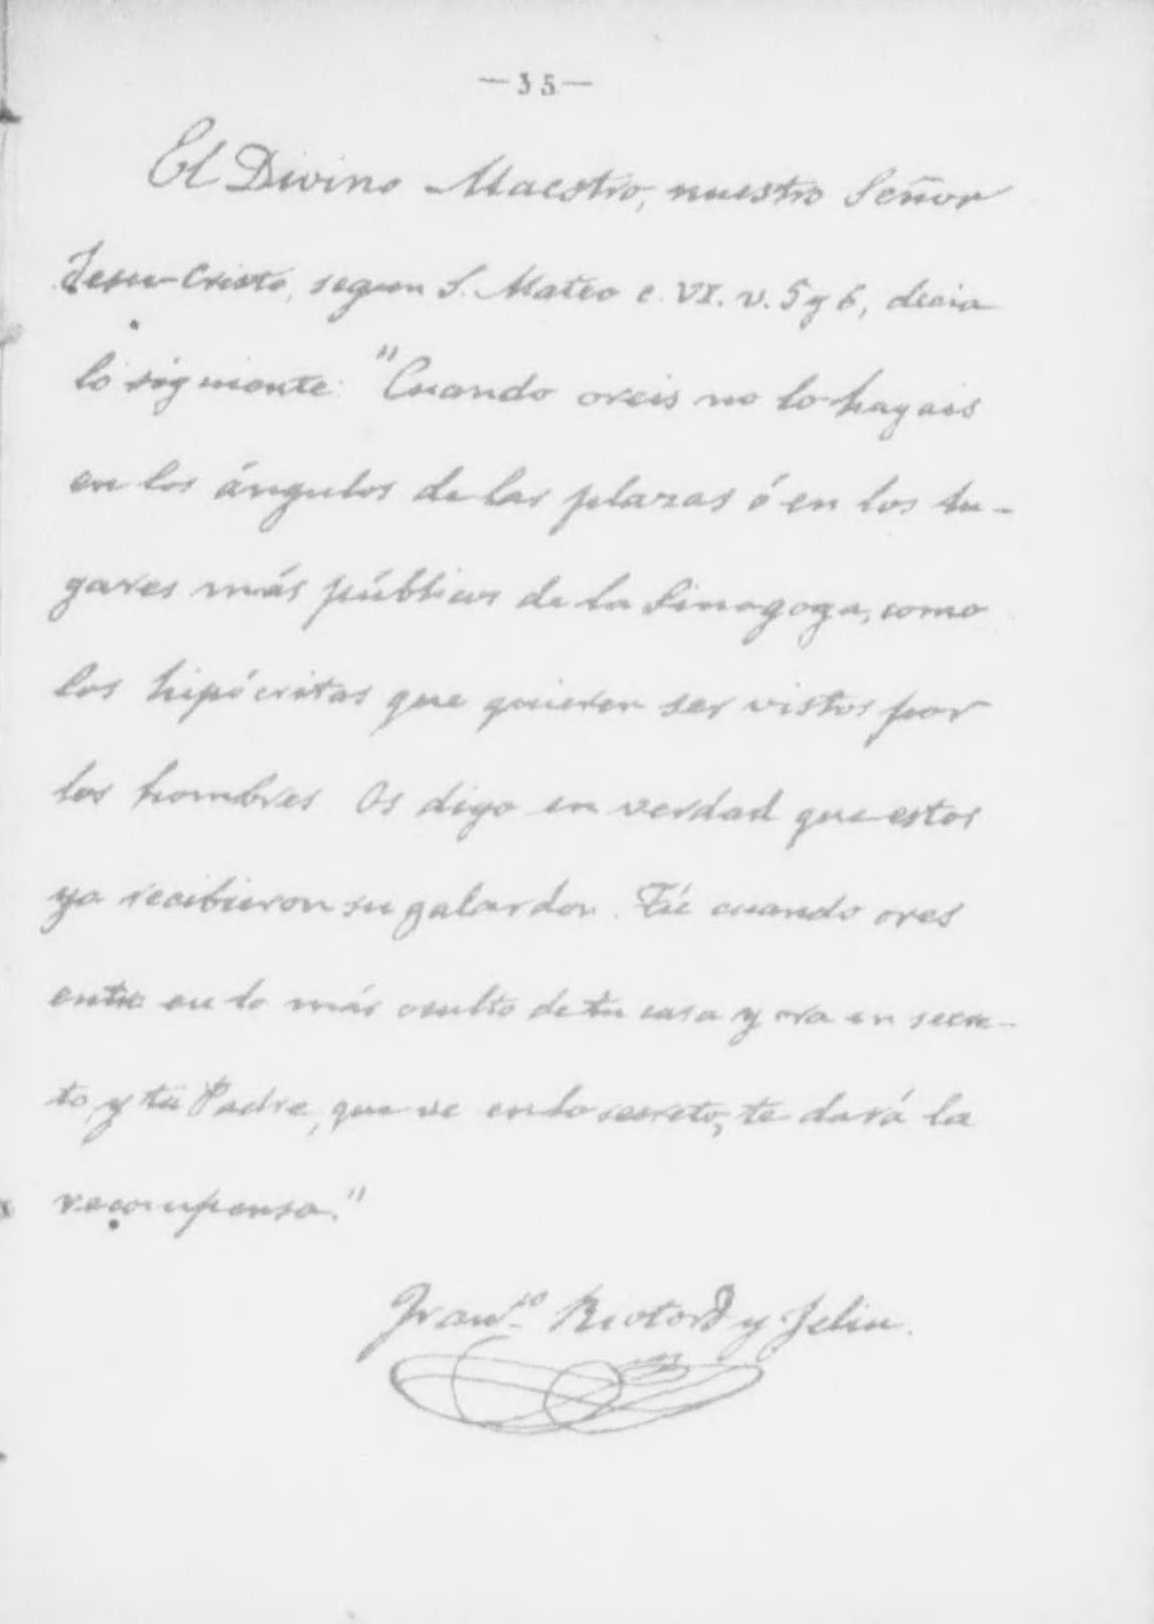 —35—
El Divino Maestro, nuestro Señor
Jesu-Cristo, segun S. Mateo c. VI. v. 5 y 6, decia
lo siguiente: "Cuando oreis no lo hagais
en los ángulos de las plazas ó en los lu-
gares más públicos de la Sinagoga, como
los hipócritas que quieren ser vistos por
los hombres Os digo en verdad que estos
ya recibieron su galardon. Tú cuando ores
entra en lo más oculto de tu casa y ora en secre-
to, y tu Padre, que ve en lo secreto, te dará la
recompensa."
Franco. Riotord y Feliu.